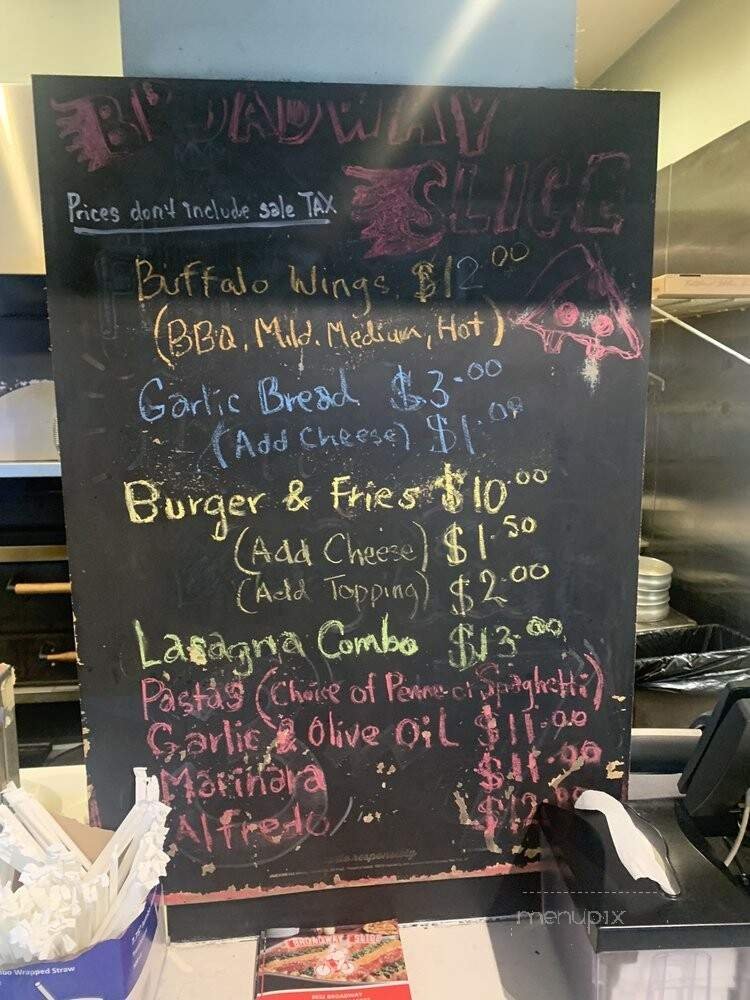 BROADWAY
SLICE
Prices don't include sale TAX
Buffalo Wings $12.00
(BBQ, Mild, Medium, Hot)
Garlic Bread $3.00
(Add Cheese) $1.00
Burger & Fries $10.00
(Add Cheese) $1.50
(Add Topping) $2.00
Lasagna Combo $13.00
Pastas (Choice of Penne or Spaghetti)
Garlic & Olive Oil $11.00
Marinara $11.00
Alfredo $12.00
responsibly
menupix
BROADWAY SLICE
Wrapped Straw